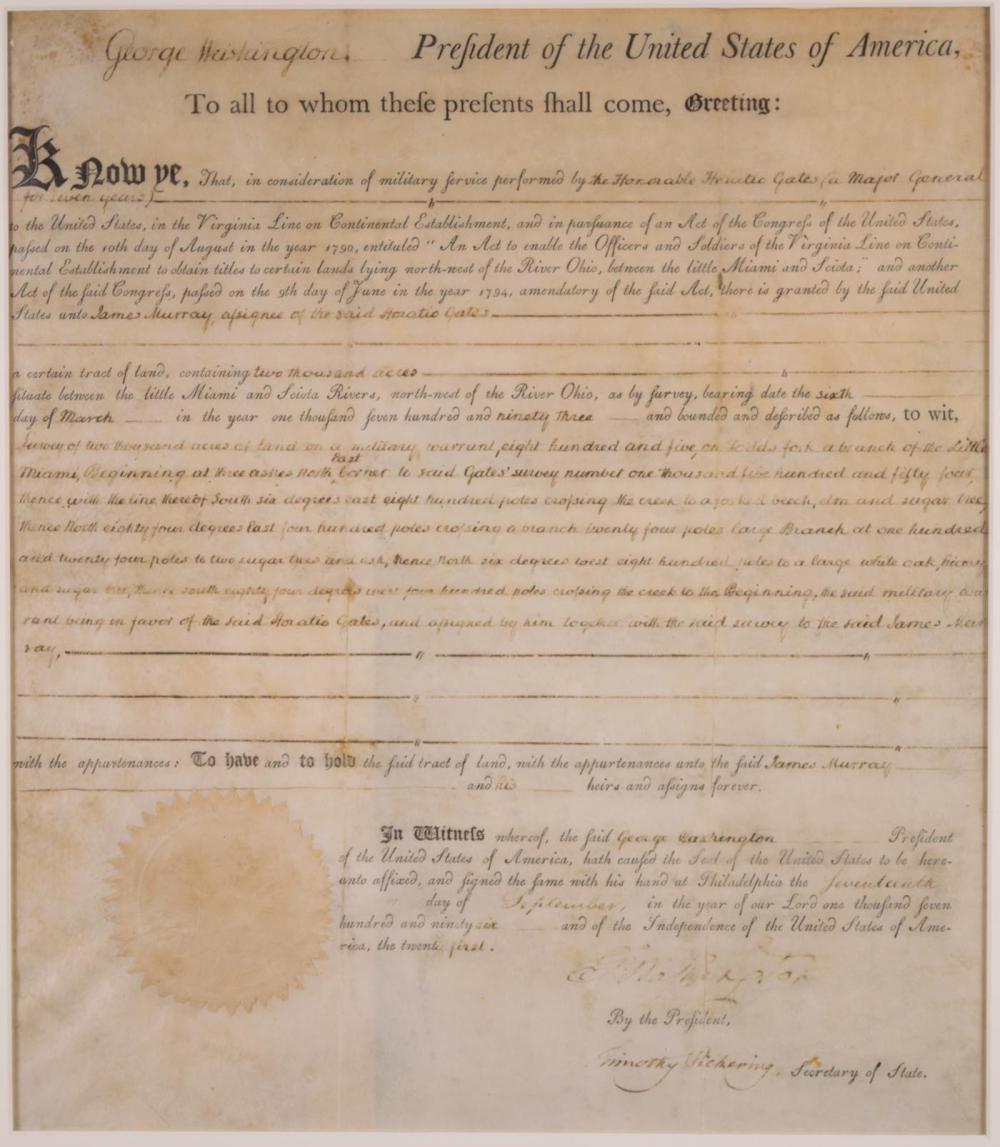 George Washington, Preſident of the United States of America,
To all to whom theſe preſents ſhall come, Greeting:
Know ye, That, in conſideration of military ſervice performed by the Honorable Horatio Gates (a Major General
for seven years)
to the United States, in the Virginia Line on Continental Eſtabliſhment, and in purſuance of an Act of the Congreſs of the United States,
paſſed on the 10th day of Auguſt in the year 1790, entituled " An Act to enable the Officers and Soldiers of the Virginia Line on Conti-
nental Eſtabliſhment to obtain titles to certain lands lying north-weſt of the River Ohio, between the little Miami and Sciota;" and another
Act of the ſaid Congreſs, paſſed on the 9th day of June in the year 1794, amendatory of the ſaid Act, there is granted by the ſaid United
States unto James Murray, aſsignee of the said Horatio Gates
a certain tract of land, containing two thousand acres
ſituate between the little Miami and Sciota Rivers, north-weſt of the River Ohio, as by ſurvey, bearing date the sixth
day of March in the year one thouſand ſeven hundred and ninety three and bounded and deſcribed as follows, to wit,
Survey of two thousand acres of land on a military warrant, eight hundred and five, on Todds fork a branch of the Little
Miami, Beginning at three ashes North East Corner to said Gates' survey number one thousand two hundred and fifty four,
thence with the line thereof South six degrees east eight hundred poles croſsing the creek to a forked beech, elm and sugar tree,
thence North eighty four degrees East four hundred poles croſsing a branch twenty four poles large Branch at one hundred
and twenty four poles to two sugar trees and ash, thence North six degrees west eight hundred poles to a large white oak, hickory
and sugar tree, thence south eighty four degrees west four hundred poles croſsing the creek to the Beginning, the said military war
rant being in favor of the said Horatio Gates, and aſsigned by him together with the said survey to the said James Mur
ray,
with the appurtenances: To have and to hold the ſaid tract of land, with the appurtenances unto the ſaid James Murray
and his heirs and aſſigns forever.
In Witneſs whereof, the ſaid George Washington Preſident
of the United States of America, hath cauſed the Seal of the United States to be here-
unto affixed, and ſigned the ſame with his hand at Philadelphia the ſeventeenth
day of September, in the year of our Lord one thouſand ſeven
hundred and ninety six and of the Independence of the United States of Ame-
rica, the twenty first.
G. Washington
By the Preſident,
Timothy Pickering, Secretary of State.